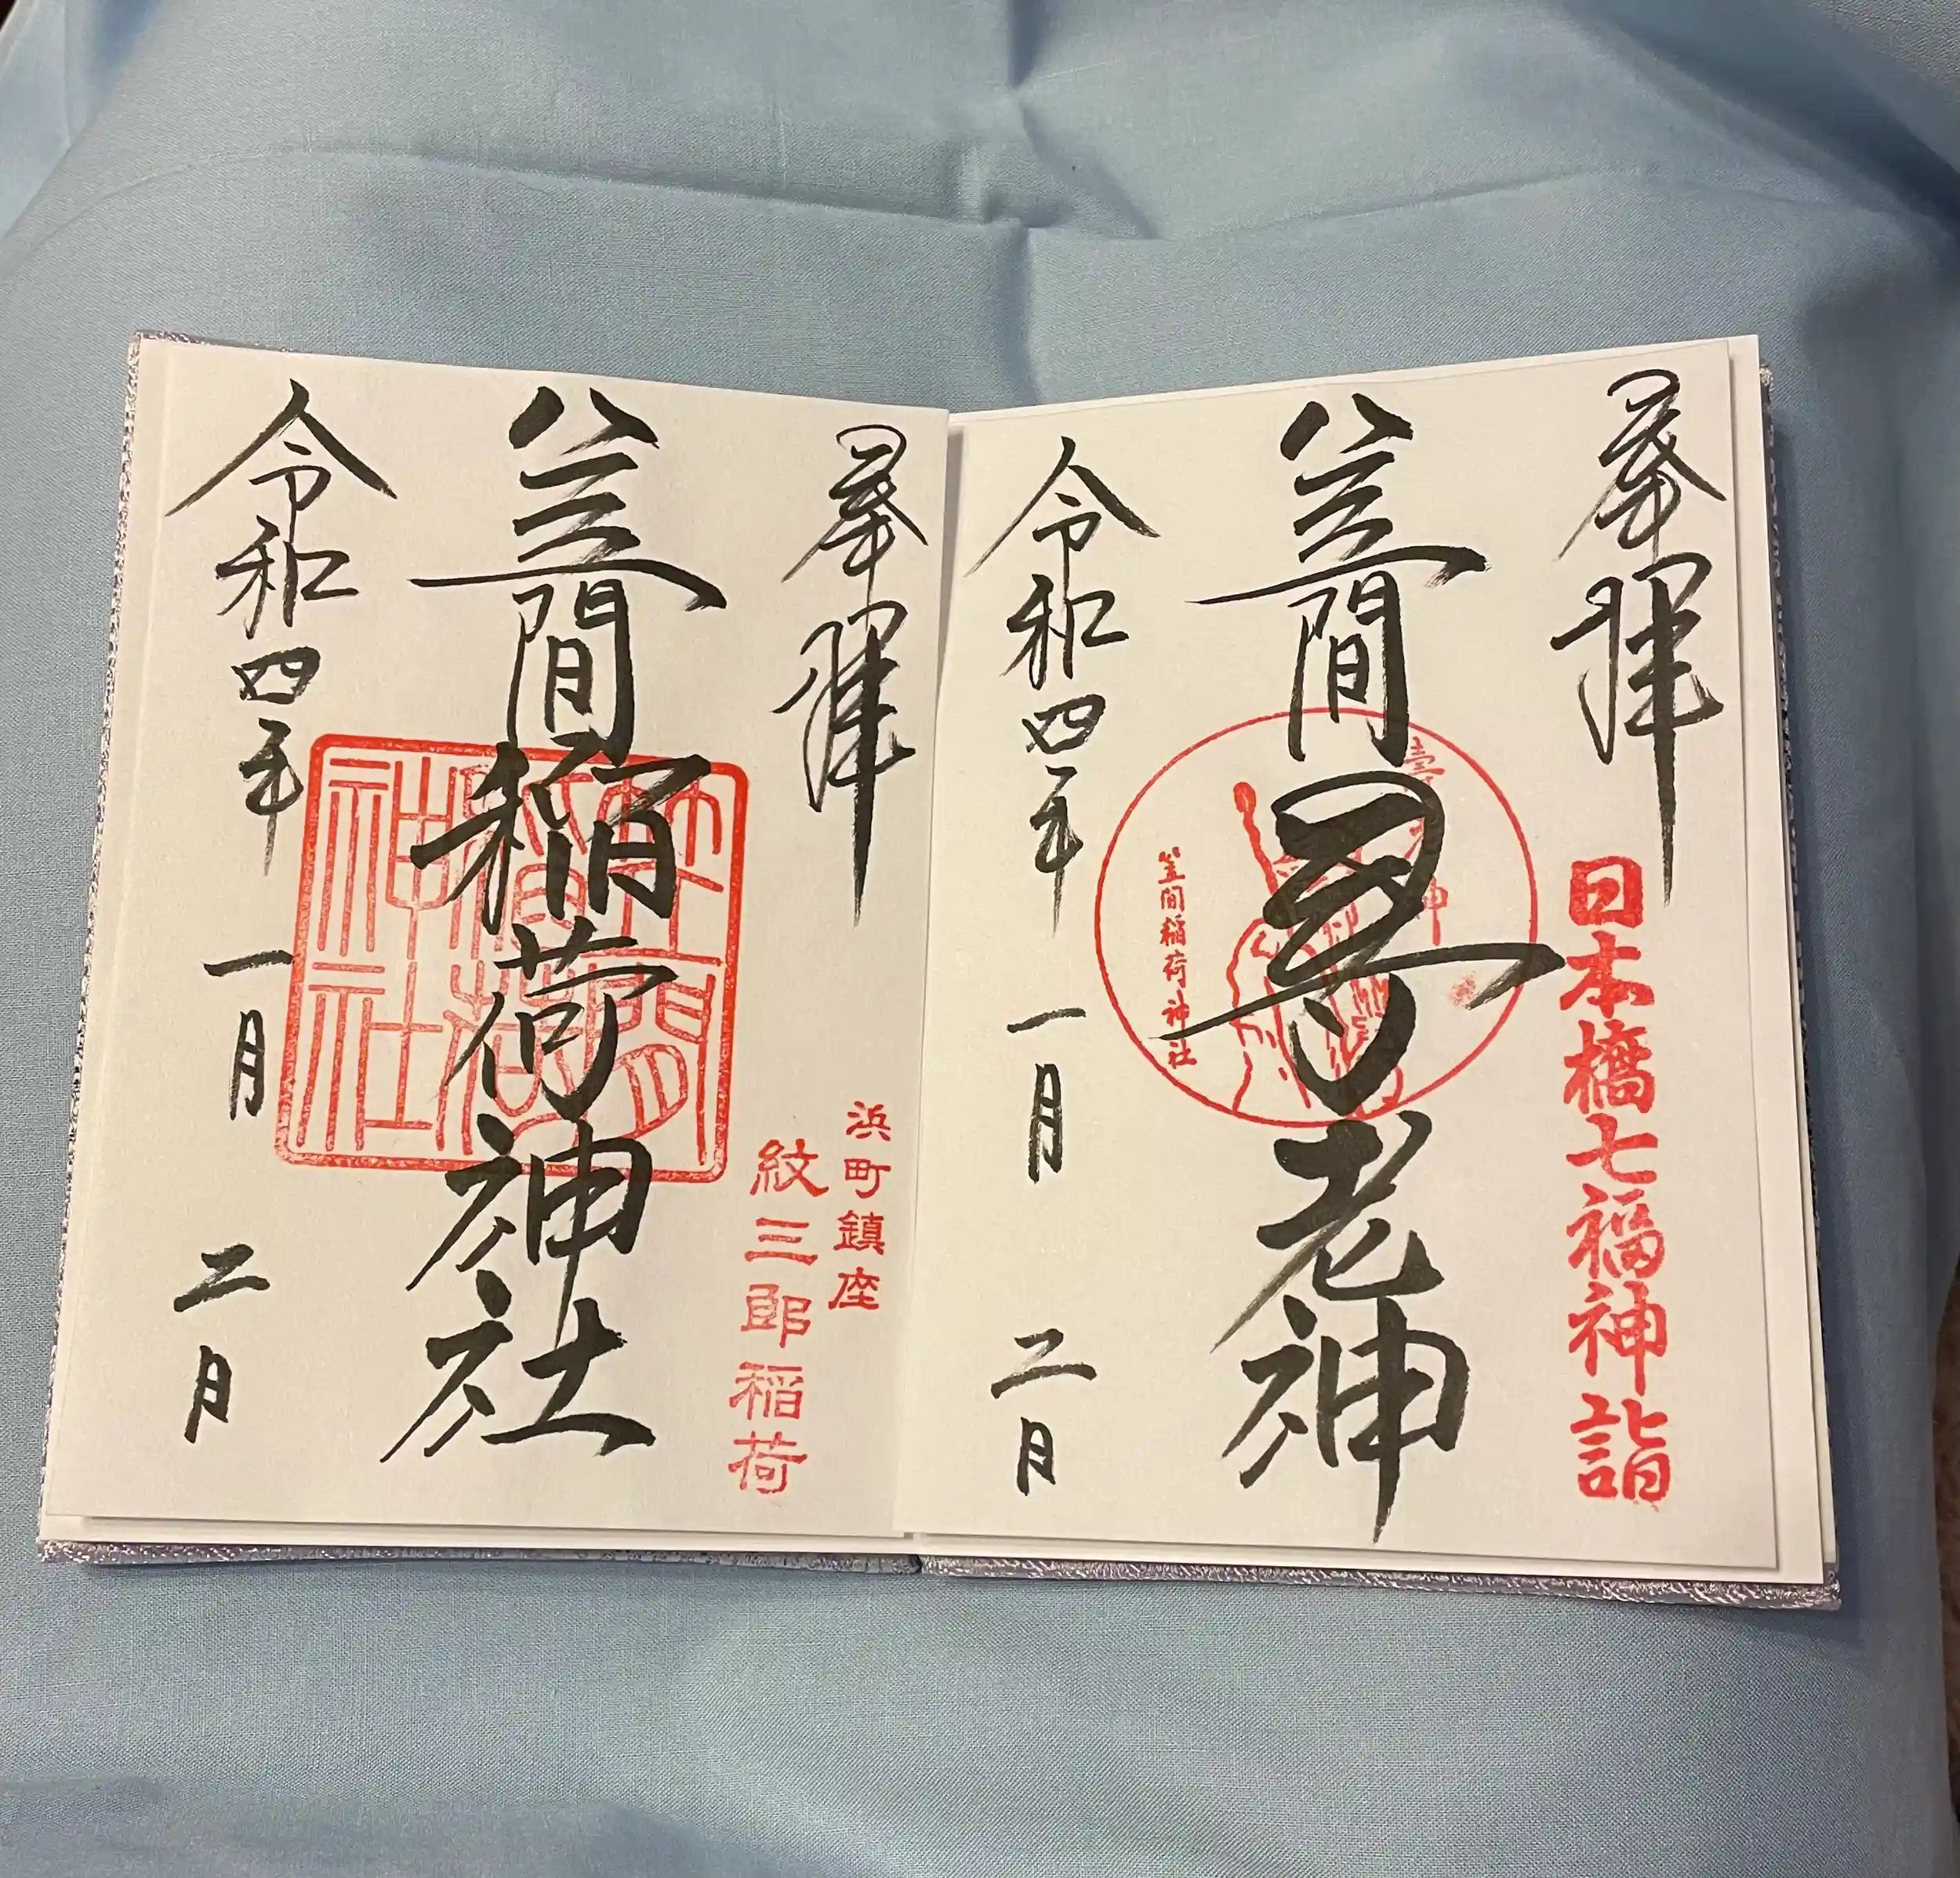 奉拝
日本橋七福神詣
笠間寿老神
笠間稲荷神社
令和四年一月二日
奉拝
浜町鎮座
紋三郎稲荷
笠間稲荷神社
笠間
稲荷
神社
令和四年一月二日